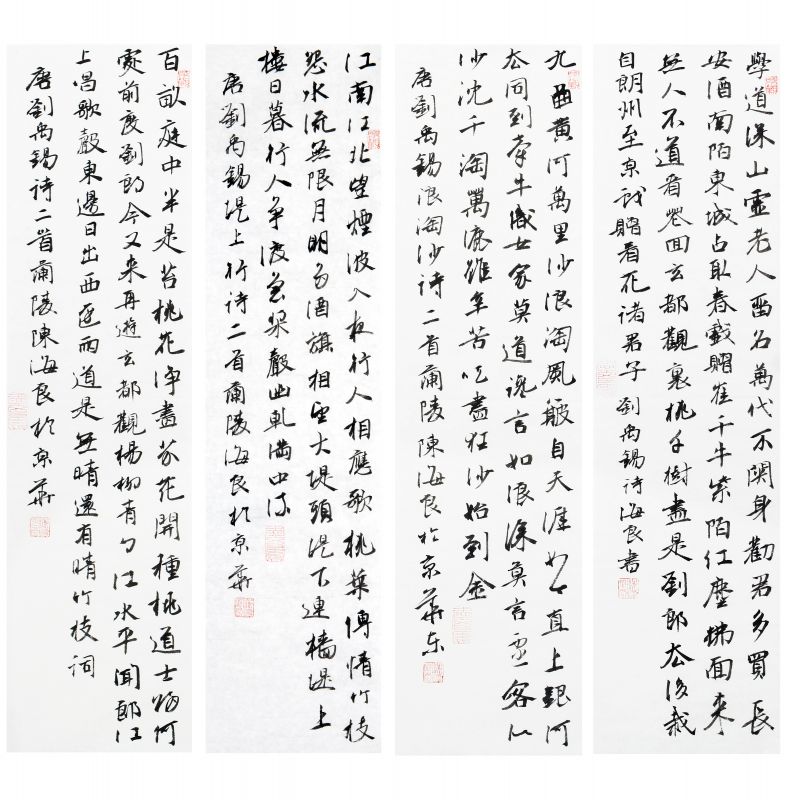 學道深山虛老人留名萬代不關身勸君多買長
安酒南陌東城占取春戲贈崔千牛紫陌紅塵拂面來
無人不道看花回玄都觀裏桃千樹盡是劉郎去後栽
自朗州至京戲贈看花諸君子劉禹錫詩海良書
九曲黃河萬里沙浪淘風簸自天涯如今直上銀河
去同到牽牛織女家莫道讒言如浪深莫言遷客似
沙沈千淘萬漉雖辛苦吹盡狂沙始到金
唐劉禹錫浪淘沙詩二首蘭陵陳海良於京華東
江南江北望煙波入夜行人相應歌桃葉傳情竹枝
怨水流無限月明多酒旗相望大堤頭堤下連檣堤上
樓日暮行人爭渡急槳聲幽軋滿中流
唐劉禹錫堤上行詩二首蘭陵海良於京華
百畝庭中半是苔桃花淨盡菜花開種桃道士歸何
處前度劉郎今又來再遊玄都觀楊柳青々江水平聞郎江
上唱歌聲東邊日出西邊雨道是無晴還有晴竹枝詞
唐劉禹錫詩二首蘭陵陳海良於京華